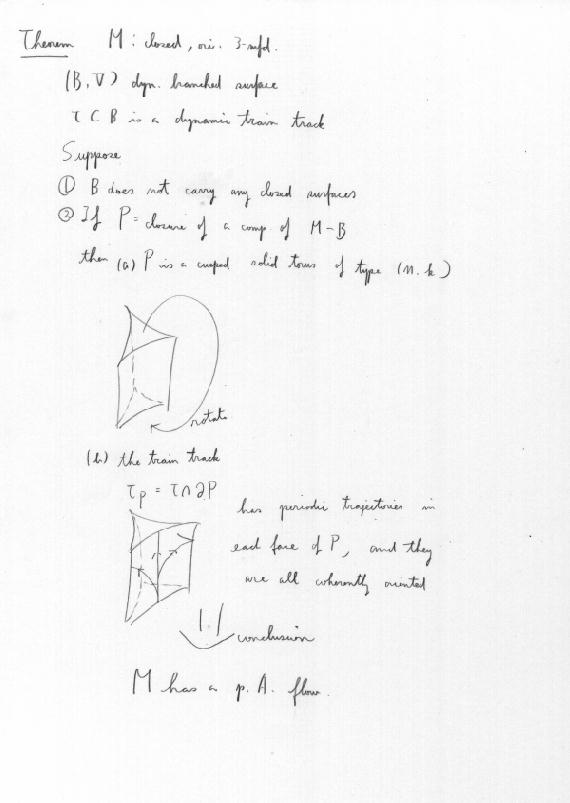 Theorem M : closed, ori. 3-mfd.
(B, V) dyn. branched surface
τ ⊂ B is a dynamic train track
Suppose
① B does not carry any closed surfaces
② If P = closure of a comp of M - B
then (a) P is a cusped solid torus of type (n. k)
rotate
(b) the train track
τ_P = τ ∩ ∂P
has periodic trajectories in
each face of P, and they
are all coherently oriented
conclusion
M has a p. A. flow.